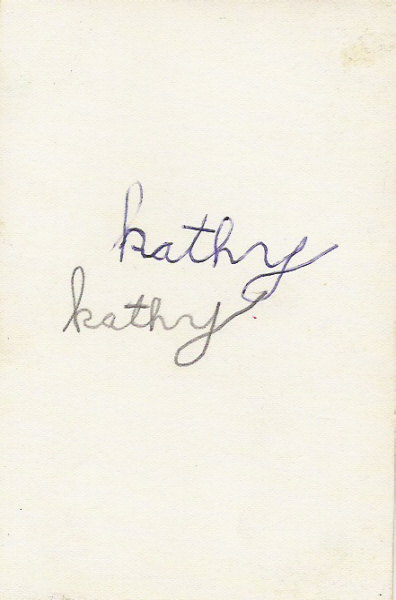 kathy
kathy